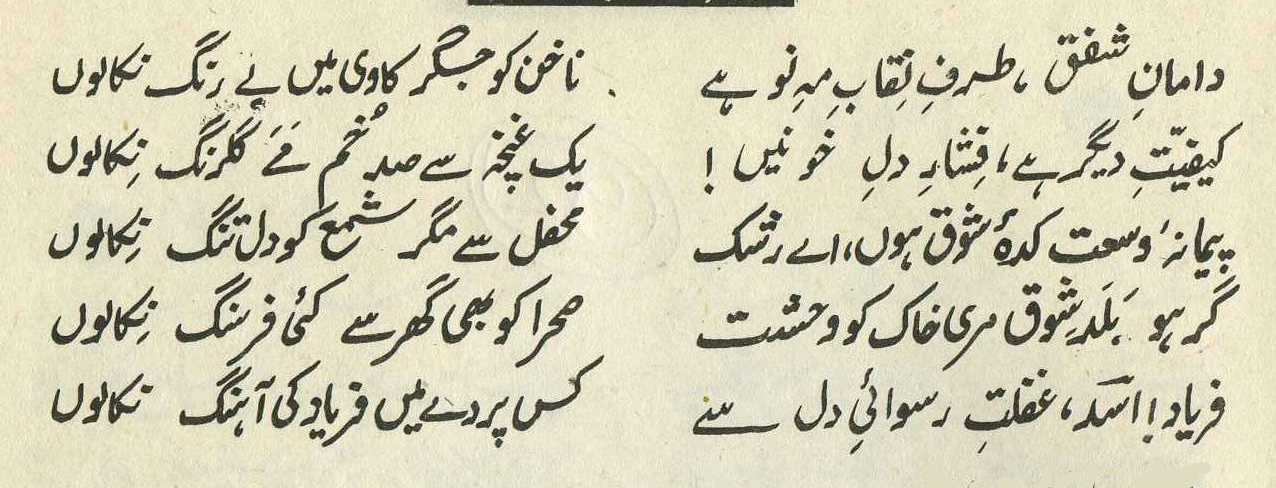 دامانِ شفق ، طرفِ نقابِ مہِ نو ہے ناخن کو جگر کاوی میں بے رنگ نکالوں
کیفیّتِ دیگر ہے، فشارِ دلِ خونیں ! یک غنچہ سے صد خُمِ مَے گلرنگ نِکالوں
پیمانۂ وسعت کدۂ شوق ہوں، اے رشک محفل سے مگر شمع کو دل تنگ نِکالوں
گر ہو بَلَدِ شوق مری خاک کو وحشت صحرا کو بھی گھر سے کئی فرسنگ نِکالوں
فریاد! اسدؔ، غفلتِ رسوائیِ دل سے کس پردے میں فریاد کی آہنگ نکالوں